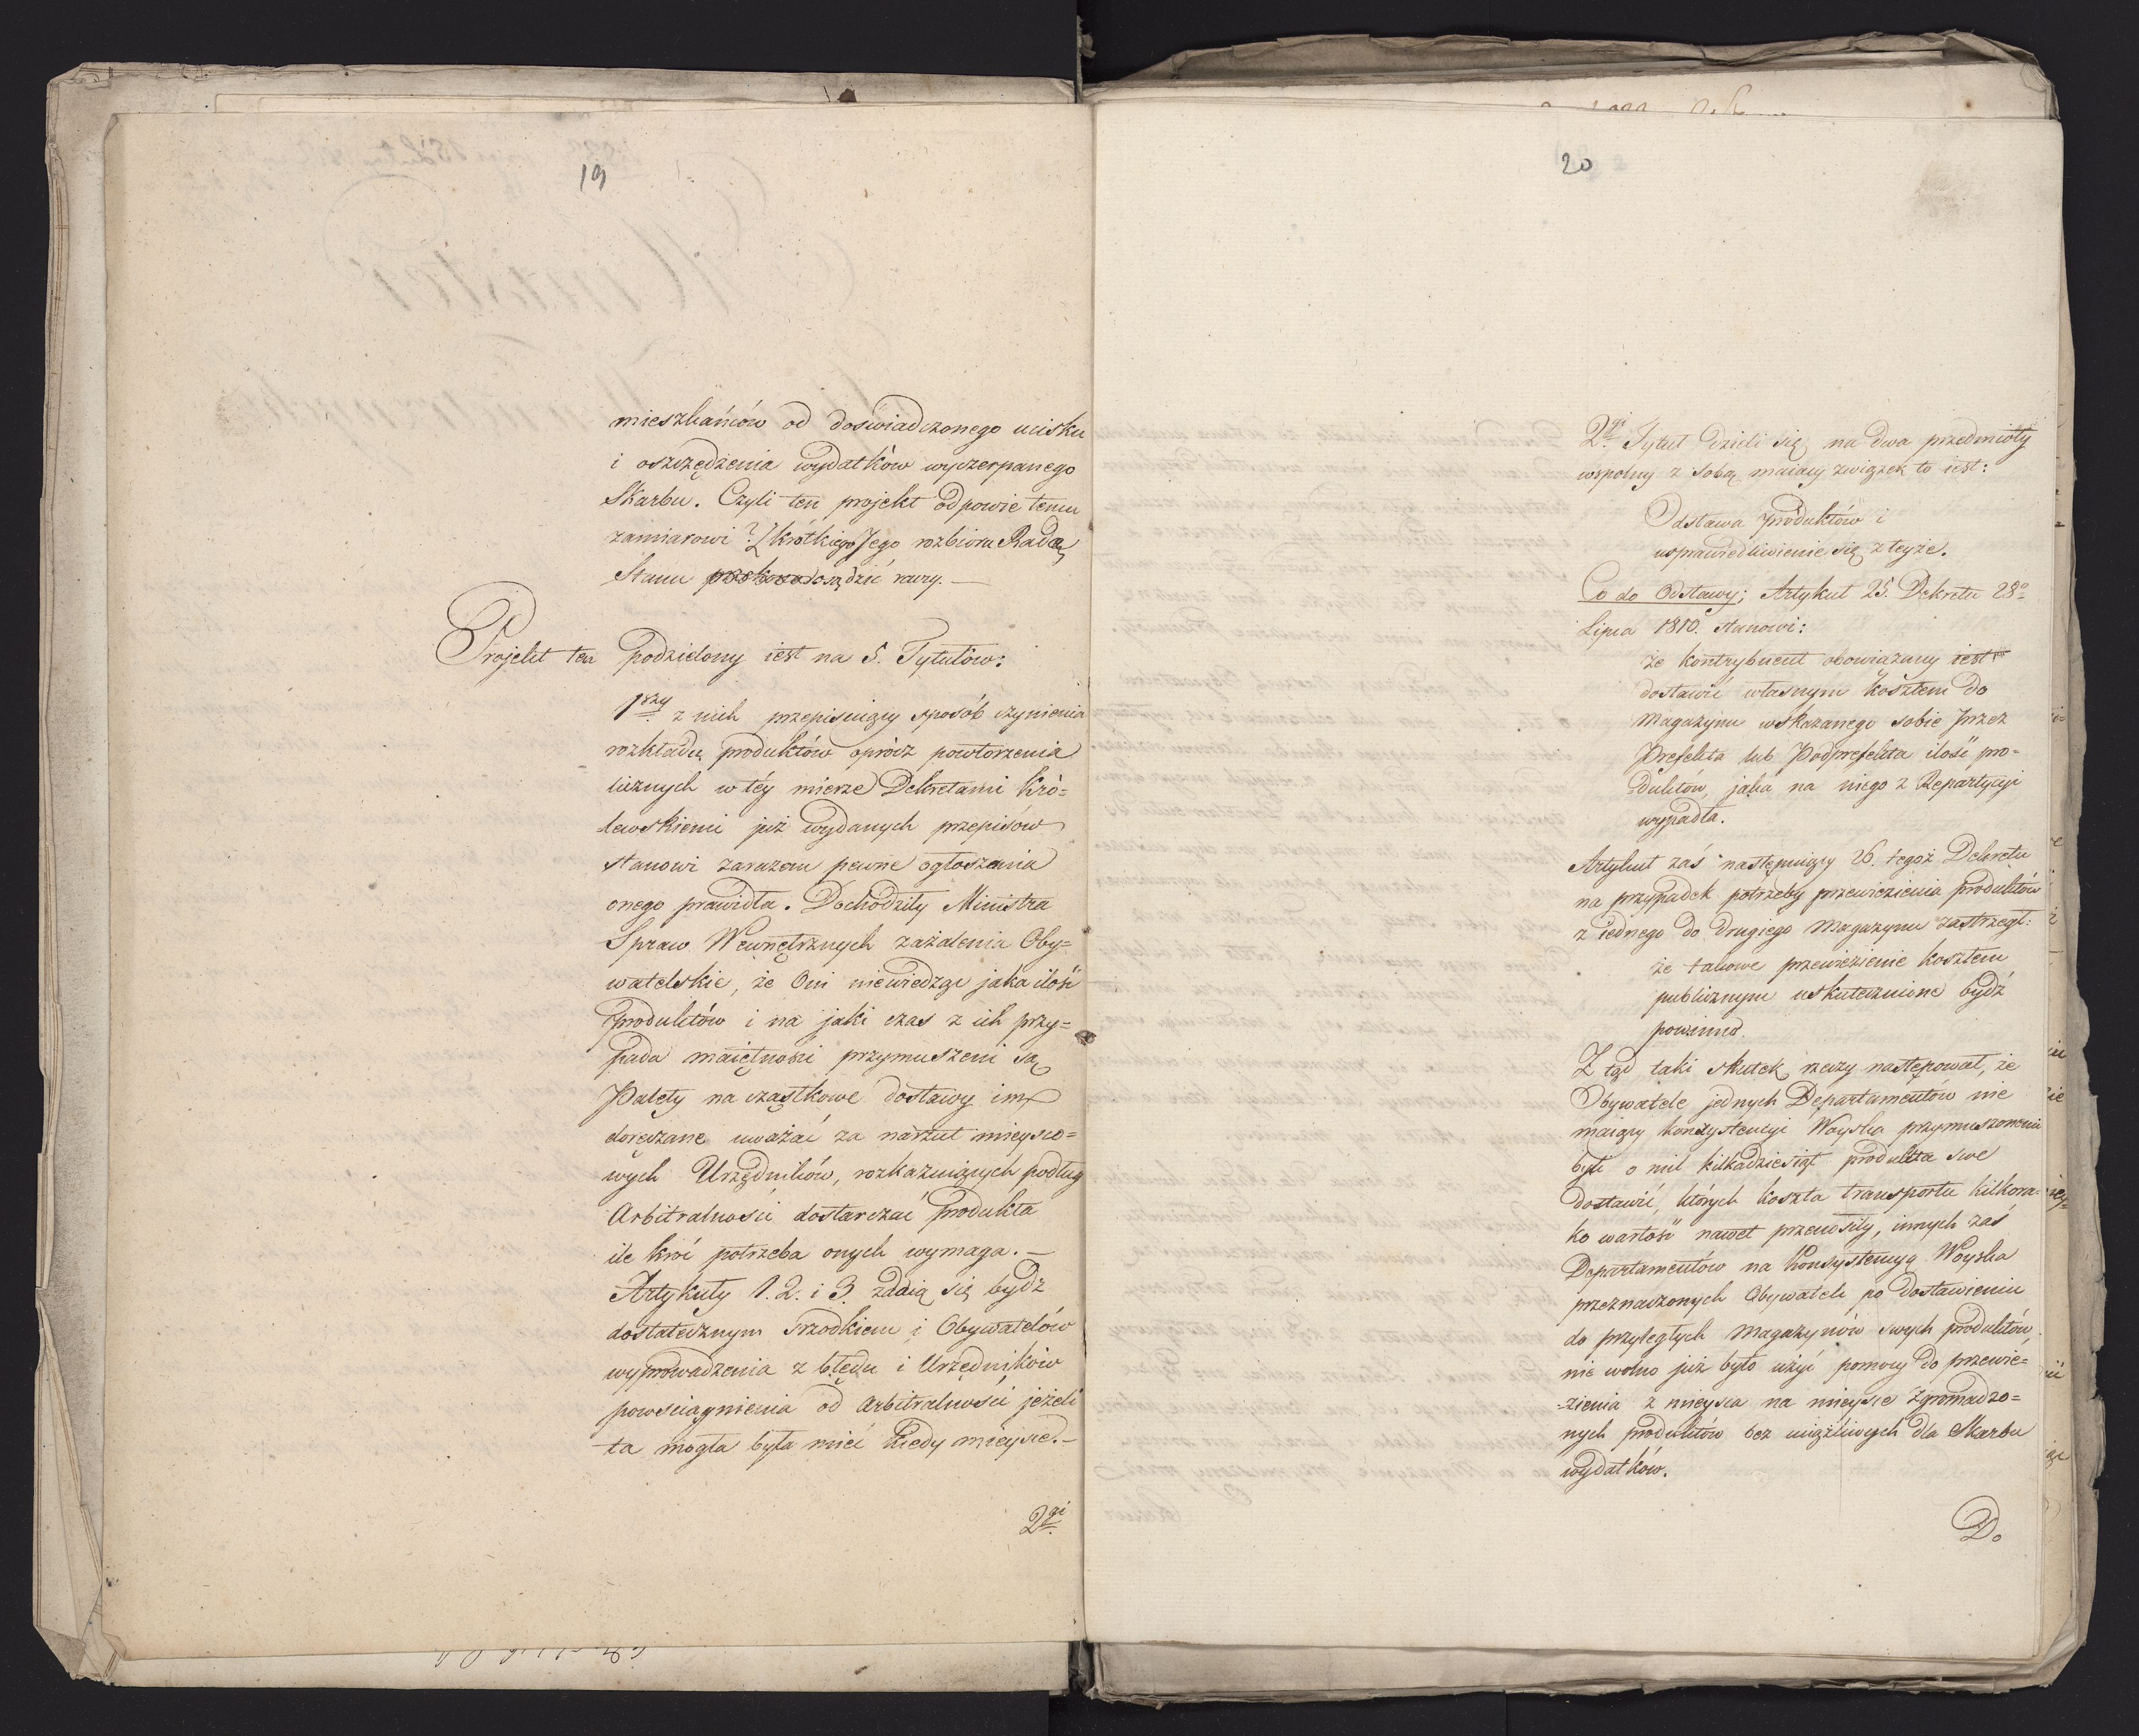 19
mieszkańców od doswiadczonego ucisku
i oszczędzenia wydatków wyczerpanego
Skarbu. Czyli ten projekt odpowie temu
zamiarowi? Z krótkiego Jego rozbioru Rada
Stanu osądzić raczy. —
Projekt ten podzielony iest na 5. Tytułów:
1wszy z nich przepisuiący sposób czynienia
rozkładu produktów oprócz powtorzenia
licznych w téy mierze Dekretami Kró=
lewskiemi już wydanych przepisów
stanowi zarazem pewne ogłoszenia
onego prawidła. Dochodziły Ministra
Spraw Wewnętrznych zażalenia Oby=
watelskie, że Oni niewiedząc jaka ilość
produktów i na jaki czas z ich przy=
pada maiętnosci przymuszeni są
Palety na cząstkowe dostawy im
doręczane uważać za narzut mieysco=
wych Urzędników, rozkazuiących podług
Arbitralności dostarczać produkta
ile kroć potrzeba onych wymaga. —
Artykuły 1. 2. i 3. zdaią się bydź
dostatecznym srzodkiem i Obywatelów
wyprowadzenia z błędu i Urzędników
powsciągnienia od arbitralności jeżeli
ta mogła była mieć kiedy mieysce. —
2gi
20
2gi Tytuł dzieli się na dwa przedmioty
wspolny z sobą maiący związek to iest:
Odstawa produktów i
usprawiedliwienie się z teyże.
Co do Odstawy; Artykuł 25. Dekretu 28o
Lipca 1810. stanowi:
że kontrybuent obowiązany iest
dostawić własnym kosztem do
Magazynu wskazanego sobie przez
Prefekta lub Podprefekta ilość pro=
duktów, jaka na niego z Repartycyi
wypadła.
Artykuł zaś następuiący 26. tegoż Dekretu
na przypadek potrzeby przewiezienia produktów
z iednego do drugiego Magazynu zastrzegł:
że takowe przewiezienie kosztem
publicznym uskutecznione bydź
powinno.
Z tąd taki skutek rzeczy następował, że
Obywatele jednych Departamentów nie
maiący konsystencyi Woyska przymuszonemi
byli o mil kilkadziesiąt produkta swe
dostawić, których koszta transportu kilkora=
ko wartość nawet przenosiły, innych zaś
Departamentów na Konsystencyą Woyska
przeznaczonych Obywateli po dostawieniu
do przyległych Magazynów swych produktów
nie wolno już było użyć pomocy do przewie=
=zienia z mieysca na mieysce zgromadzo=
nych produktów bez uciążliwych dla Skarbu
wydatków.
Do